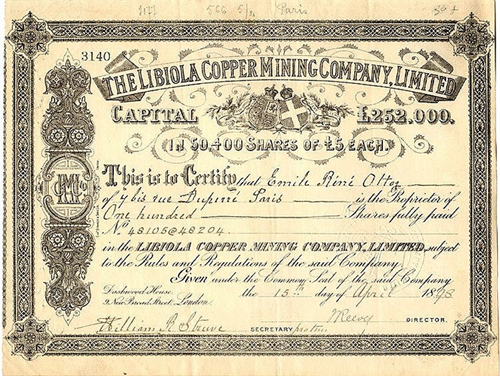 566 5/- Paris
3140
THE LIBIOLA COPPER MINING COMPANY, LIMITED
CAPITAL £252,000.
IN 50,400 SHARES OF £5 EACH.
This is to Certify that Emile Réné Otter
of 7 bis rue Dupuis Paris is the Proprietor of
One hundred Shares fully paid
No. 48105@48204
in the LIBIOLA COPPER MINING COMPANY, LIMITED, subject
to the Rules and Regulations of the said Company
Given under the Common Seal of the said Company
Dashwood House,
9 New Broad Street, London.
the 15th day of April 1898
DIRECTOR.
William A Struve SECRETARY pro tem